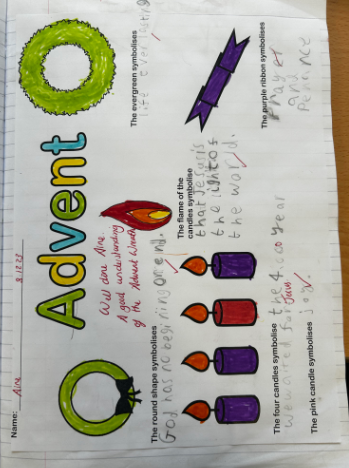 Name: Aine
8.12.23
Advent
Well done Aine.
A good understanding
of the Advent Wreath
The evergreen symbolises
life everlasting
The round shape symbolises
God has no begining or end.
The flame of the
candles symbolise
that Jesus is
the light of
the world.
The purple ribbon symbolises
Prayer
and
Pennance
The four candles symbolise the 4000 year
we waited for Jesus
The pink candle symbolises
joy.